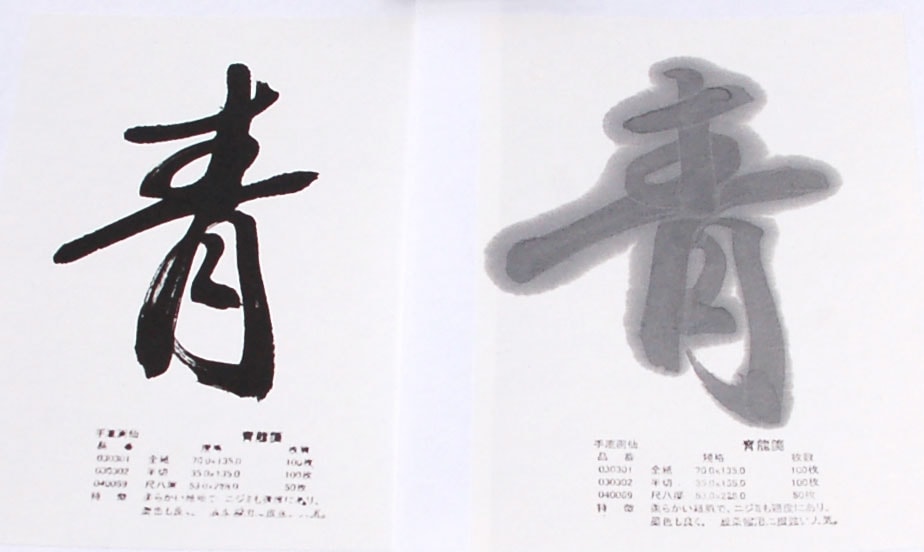 青
手漉画仙 青龍箋
品番 規格 枚数
030301 全紙 70.0×135.0 100枚
030302 半切 35.0×135.0 100枚
040059 尺八屏 53.0×228.0 50枚
特徴 柔らかい紙質で、ニジミも適度にあり、
墨色も良く、
青
手漉画仙 青龍箋
品番 規格 枚数
030301 全紙 70.0×135.0 100枚
030302 半切 35.0×135.0 100枚
040059 尺八屏 53.0×228.0 50枚
特徴 柔らかい紙質で、ニジミも適度にあり、
墨色も良く、